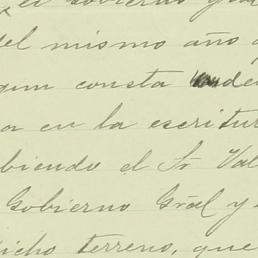 el Gobierno y
del mismo año
gun consta de
a en la escritur
biendo el Sr Val
Gobierno Gral y
dicho terreno, que